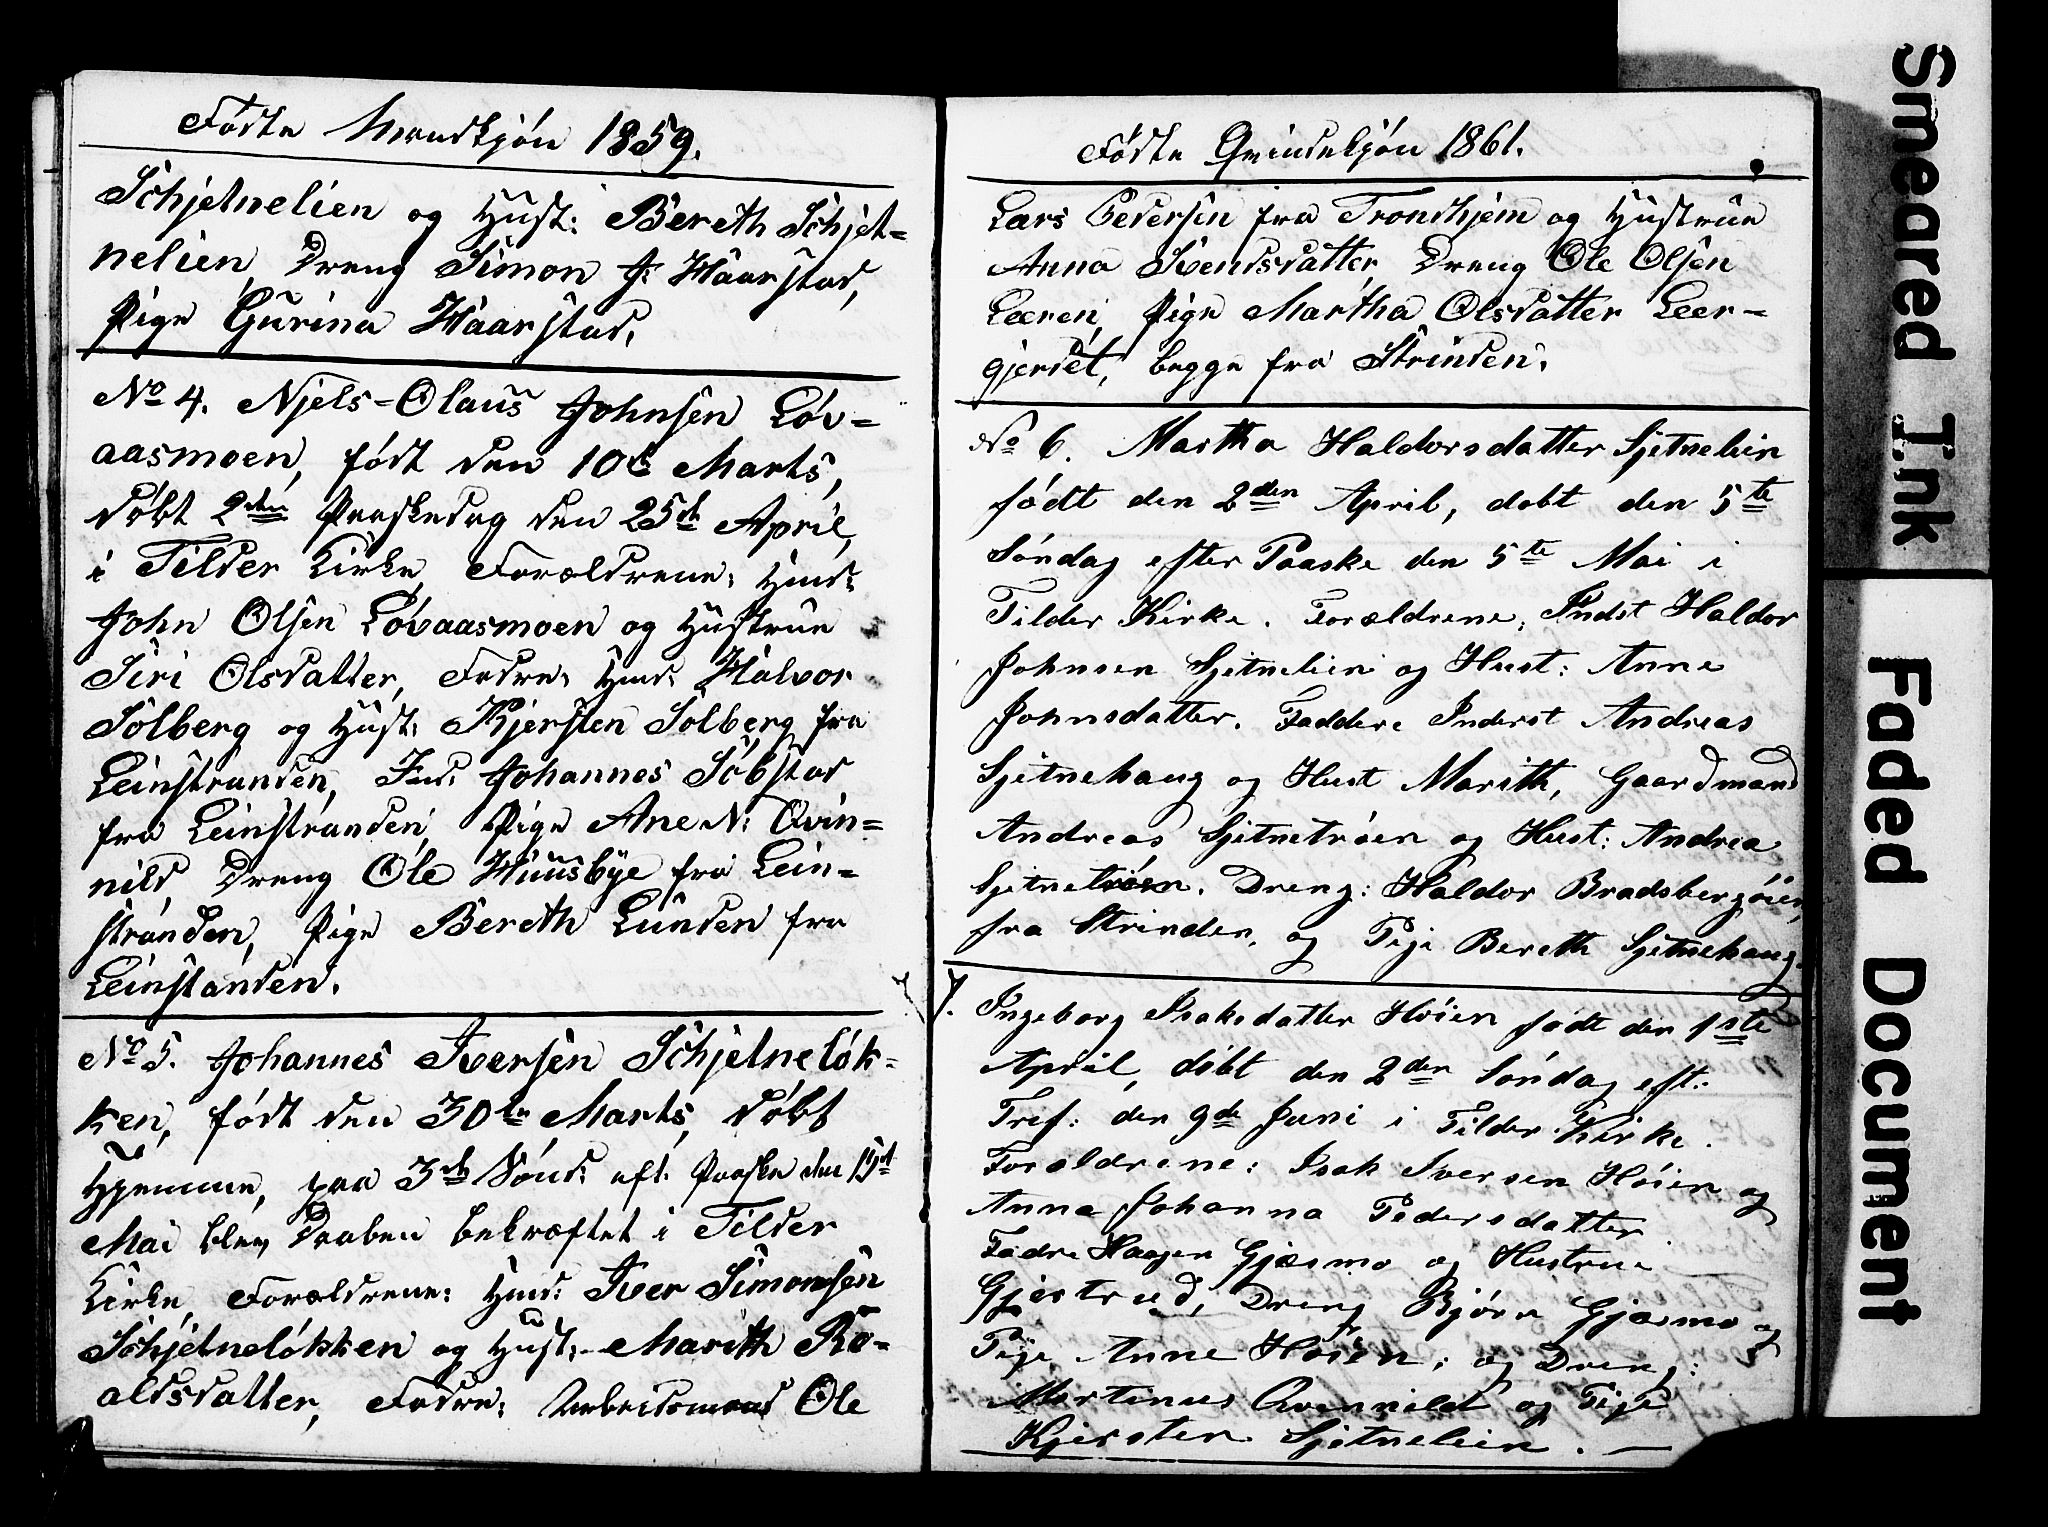 Fødte Mandkjøn 1859.
Schjetnelien og Hust: Bereth Schjet=
nelien, Dreng Simon J: Haarstad,
Pige Gurina Haarstad.
No 4. Njels=Olaus Johnsen Løv=
aasmoen, født den 10de Marts,
døbt 2den Paaskedag den 25de April,
i Tilder Kirke, Forældrene: Hmd:
John Olsen Løvaasmoen og Hustrue
Siri Olsdatter, Fadre: Hmd: Halvor
Solberg og Hust: Kjersten Solberg fra
Leinstranden, Ind: Johannes Söbstad
fra Leinstranden, Pige Ane N: Qvin=
nild, Dreng Ole Huusbye fra Lein=
stranden, Pige Bereth Lunden fra
Leinstanden.
No 5. Johannes Iversen Schjetneløk-
ken, født den 30te Marts, døbt
Hjemme, paa 3de Sönd: eft: Paaske den 15de
Mai blev Daaben bekræftet i Tilder
Kirke, Forældrene: Hmd: Iver Simonsen
Schjetneløkken og Hust: Marith Ro=
aldsdatter, Fadre: Arbeidsmand Ole
Fødte Qvindekjøn 1861.
Lars Pedersen fra Trondhjem og Hustrue
Anna Svendsdatter, Dreng Ole Olsen
Læren, Pige Martha Olsdatter Leer=
gjerdet, begge fra Strinden.
No 6. Martha Haldorsdatter Sjetnelien
født den 2den April, døbt den 5te
Søndag efter Paaske den 5te Mai i
Tilder Kirke. Forældrene: Indst Haldor
Johnsen Sjetnelien og Hust: Anne
Johnsdatter. Faddere Inderst Andreas
Sjetnehaug og Hust Marith, Gaardmand
Andreas Sjetnetrøen og Hust: Andrea
Sjetnetrøen. Dreng: Haldor Bradsbergøien,
fra Strinden, og Pige Bereth Sjetnehaug.
7. Ingeborg Isaksdatter Høien født den 1ste
April, døbt den 2den Søndag eft:
Tref: den 9de Juni i Tilder Kirke.
Forældrene: Isak Iversen Høien og
Anna Johanna Pedersdatter.
Fadre Haagen Gjæsmo og Hustrue
Gjertrud, Dreng Bjørn Gjæsmo og
Pige Anne Høien, og Dreng:
Martinus Qvennild og Pige
Kjersten Sjetnelien.
Smeared Ink
Faded Document